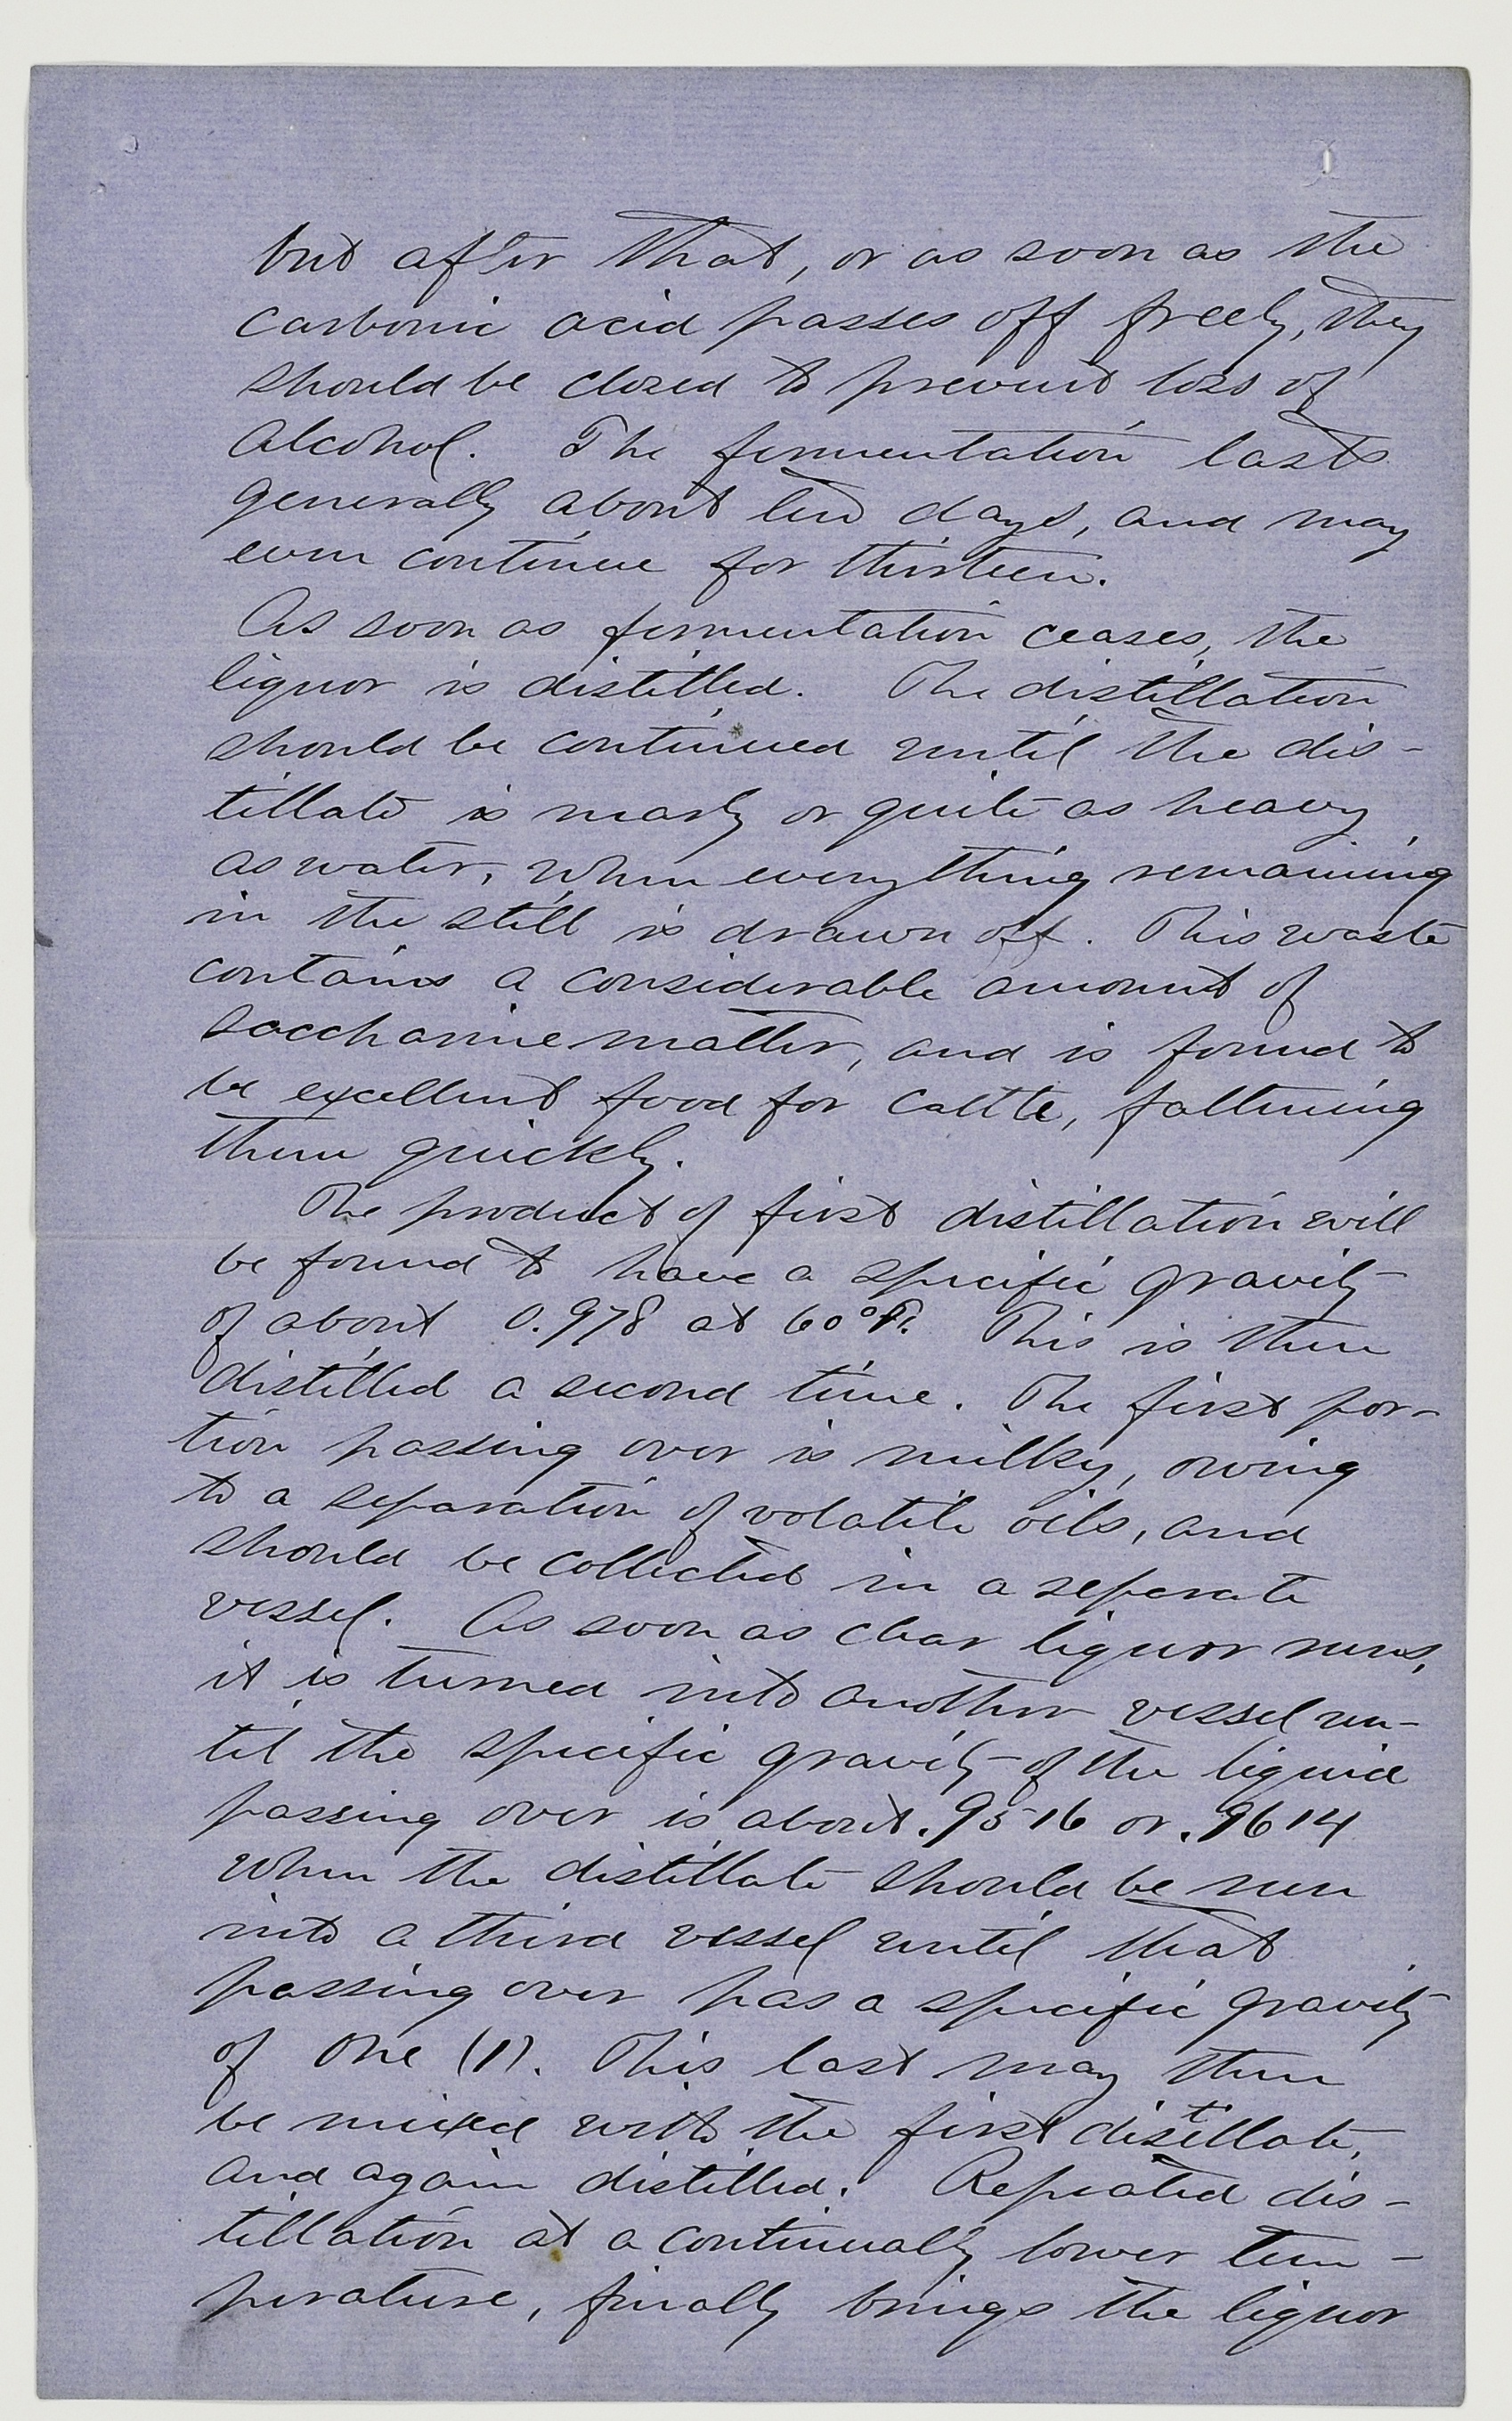 but after that, or as soon as the
carbonic acid passes off freely, they
should be closed to prevent loss of
alcohol. The fermentation lasts
generally about ten days, and may
even continue for thirteen.
As soon as fermentation ceases, the
liquor is distilled. The distillation
should be continued until the dis-
tillate is nearly or quite as heavy
as water, when everything remaining
in the still is drawn off. This waste
contains a considerable amount of
saccharine matter, and is found to
be excellent food for cattle, fattening
them quickly.
The product of first distillation will
be found to have a specific gravity
of about 0.978 at 60°F. This is then
distilled a second time. The first por-
tion passing over is milky, owing
to a separation of volatile oils, and
should be collected in a separate
vessel. As soon as clear liquor runs,
it is turned into another vessel un-
til the specific gravity of the liquid
passing over is about .9516 or .9614
when the distillate should be run
into a third vessel until that
passing over has a specific gravity
of one (1). This last may then
be mixed with the first distillate,
and again distilled. Repeated dis-
tillation at a continually lower tem-
perature, finally brings the liquor